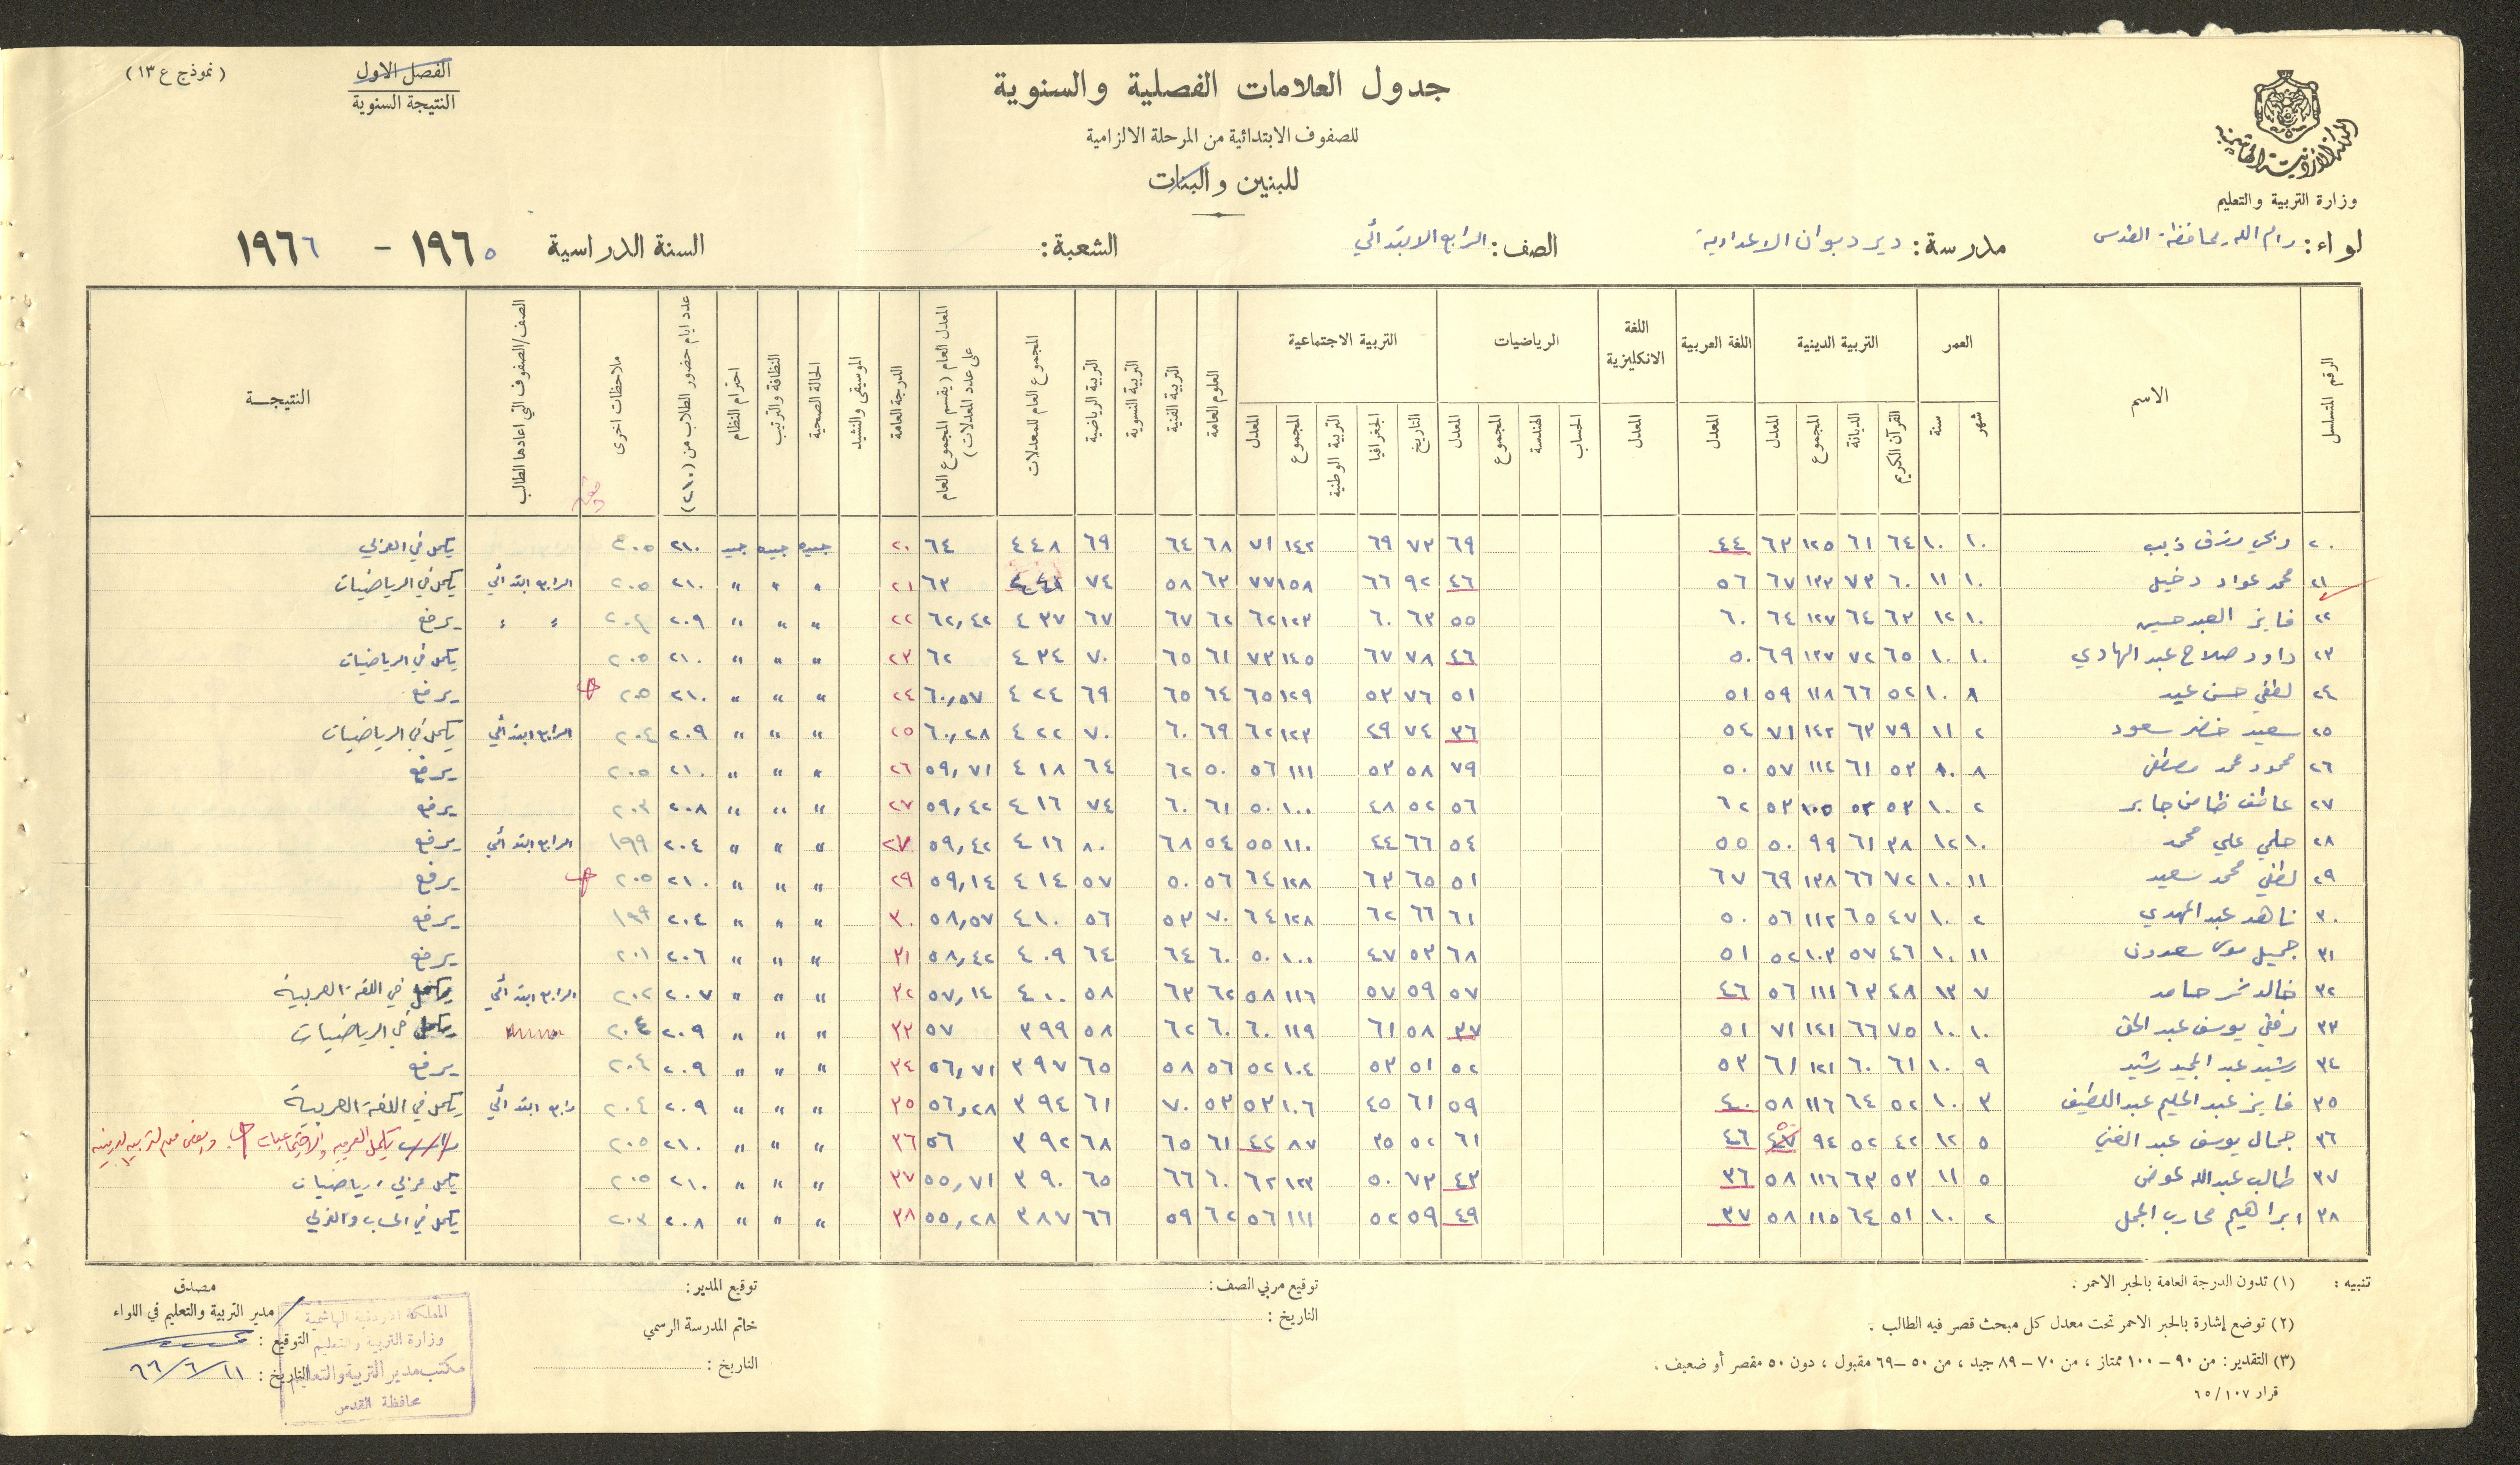 (نموذج ع ١٣)
الفصل الاول
النتيجة السنوية
جدول العلامات الفصلية والسنوية
للصفوف الابتدائية من المرحلة الالزامية
للبنين والبنات
المملكة الاردنية الهاشمية
وزارة التربية والتعليم
لواء: رام الله محافظة القدس مدرسة: دير دبوان الاعدادية الصف: الرابع الابتدائي الشعبة: السنة الدراسية ١٩٦٥ - ١٩٦٦
الرقم المتسلسل الاسم العمر شهر سنة التربية الدينية القرآن الكريم الديانة المجموع المعدل اللغة العربية المعدل اللغة الانكليزية المعدل الرياضيات الحساب الهندسة المجموع المعدل التربية الاجتماعية التاريخ الجغرافيا التربية الوطنية المجموع المعدل العلوم العامة التربية الفنية التربية النسوية التربية الرياضية المجموع العام للمعدلات المعدل العام (يقسم المجموع العام على عدد المعدلات) الدرجة العامة الموسيقى والنشيد الحالة الصحية النظافة والترتيب احترام النظام عدد ايام حضور الطلاب من (٢١٠) ملاحظات اخرى الصف/الصفوف التي اعادها الطالب النتيجة
٢٠ ربحي رزق ذيب ١٠ ١٠ ٦٤ ٦١ ١٢٥ ٦٣ ٤٤ ٦٩ ٧٣ ٦٩ ١٤٢ ٧١ ٦٨ ٦٤ ٦٩ ٤٤٨ ٦٤ ٢٠ جيده جيده جيد ٢١٠ ٢٠٥ يكمل في العربي
٢١ محمد عواد دخيل ١٠ ١١ ٦٠ ٧٣ ١٣٣ ٦٧ ٥٦ ٤٦ ٩٢ ٦٦ ١٥٨ ٧٧ ٦٣ ٥٨ ٧٤ ٤٤١ ٦٣ ٢١ " " " ٢١٠ ٢٠٥ الرابع ابتدائي يكمل في الرياضيات
٢٢ فايز العبد حسين ١٠ ١٢ ٦٣ ٦٤ ١٢٧ ٦٤ ٦٠ ٥٥ ٦٣ ٦٠ ١٢٣ ٦٢ ٦٢ ٦٧ ٦٧ ٤٣٧ ٦٢,٤٢ ٢٢ " " " ٢٠٩ ٢٠٤ " " يرفع
٢٣ داود صلاح عبد الهادي ١٠ ١٠ ٦٥ ٧٢ ١٣٧ ٦٩ ٥٠ ٤٦ ٧٨ ٦٧ ١٤٥ ٧٣ ٦١ ٦٥ ٧٠ ٤٣٤ ٦٢ ٢٣ " " " ٢١٠ ٢٠٥ يكمل في الرياضيات
٢٤ لطفي حسن عيد ٨ ١٠ ٥٢ ٦٦ ١١٨ ٥٩ ٥١ ٥١ ٧٦ ٥٣ ١٢٩ ٦٥ ٦٤ ٦٥ ٦٩ ٤٢٤ ٦٠,٥٧ ٢٤ " " " ٢١٠ ٢٠٥ يرفع
٢٥ سعيد خضر سعود ٢ ١١ ٧٩ ٦٣ ١٤٢ ٧١ ٥٤ ٣٦ ٧٤ ٤٩ ١٢٣ ٦٢ ٦٩ ٦٠ ٧٠ ٤٢٢ ٦٠,٢٨ ٢٥ " " " ٢٠٩ ٢٠٤ الرابع ابتدائي يكمل في الرياضيات
٢٦ محمود محمد مصطفى ٨ ١٠ ٥٣ ٦١ ١١٢ ٥٧ ٥٠ ٧٩ ٥٨ ٥٣ ١١١ ٥٦ ٥٠ ٦٢ ٦٤ ٤١٨ ٥٩,٧١ ٢٦ " " " ٢١٠ ٢٠٥ يرفع
٢٧ عاطف ظامن جابر ٢ ١٠ ٥٣ ٥٢ ١٠٥ ٥٣ ٦٢ ٥٦ ٥٢ ٤٨ ١٠٠ ٥٠ ٦١ ٦٠ ٧٤ ٤١٦ ٥٩,٤٢ ٢٧ " " " ٢٠٨ ٢٠٣ يرفع
٢٨ حلمي علي محمد ١٠ ١٢ ٣٨ ٦١ ٩٩ ٥٠ ٥٥ ٥٤ ٦٦ ٤٤ ١١٠ ٥٥ ٥٤ ٦٨ ٨٠ ٤١٦ ٥٩,٤٢ ٢٧ " " " ٢٠٤ ١٩٩ الرابع ابتدائي يرفع
٢٩ لطفي محمد سعيد ١١ ١٠ ٧٢ ٦٦ ١٣٨ ٦٩ ٦٧ ٥١ ٦٥ ٦٣ ١٢٨ ٦٤ ٥٦ ٥٠ ٥٧ ٤١٤ ٥٩,١٤ ٢٩ " " " ٢١٠ ٢٠٥ يرفع
٣٠ ناهد عبد المهدي ٢ ١٠ ٤٧ ٦٥ ١١٢ ٥٦ ٥٠ ٦١ ٦٦ ٦٢ ١٢٨ ٦٤ ٧٠ ٥٣ ٥٦ ٤١٠ ٥٨,٥٧ ٣٠ " " " ٢٠٤ ١٩٩ يرفع
٣١ جميل موسى سعدون ١١ ١٠ ٤٦ ٥٧ ١٠٣ ٥٢ ٥١ ٦٨ ٥٣ ٤٧ ١٠٠ ٥٠ ٦٠ ٦٤ ٦٤ ٤٠٩ ٥٨,٤٢ ٣١ " " " ٢٠٦ ٢٠١ يرفع
٣٢ خالد نمر حامد ٧ ١٣ ٤٨ ٦٣ ١١١ ٥٦ ٤٦ ٥٧ ٥٩ ٥٧ ١١٦ ٥٨ ٦٢ ٦٣ ٥٨ ٤٠٠ ٥٧,١٤ ٣٢ " " " ٢٠٧ ٢٠٢ الرابع ابتدائي يكمل في اللغة العربية
٣٣ رفقي يوسف عبد الحق ١٠ ١٠ ٧٥ ٦٦ ١٤١ ٧١ ٥١ ٣٧ ٥٨ ٦١ ١١٩ ٦٠ ٦٠ ٦٢ ٥٨ ٣٩٩ ٥٧ ٣٣ " " " ٢٠٩ ٢٠٤ يكمل في الرياضيات
٣٤ رشيد عبد المجيد رشيد ٩ ١٠ ٦١ ٦٠ ١٢١ ٦١ ٥٣ ٥٢ ٥١ ٥٣ ١٠٤ ٥٢ ٥٦ ٥٨ ٦٥ ٣٩٧ ٥٦,٧١ ٣٤ " " " ٢٠٩ ٢٠٤ يرفع
٣٥ فايز عبد الحليم عبد اللطيف ٣ ١٠ ٥٢ ٦٤ ١١٦ ٥٨ ٤٠ ٥٩ ٦١ ٤٥ ١٠٦ ٥٣ ٥٣ ٧٠ ٦١ ٣٩٤ ٥٦,٢٨ ٣٥ " " " ٢٠٩ ٢٠٤ رابع ابتدائي يكمل في اللغة العربية
٣٦ جمال يوسف عبد الغني ٥ ١٢ ٤٢ ٥٢ ٩٤ ٤٧ ٤٦ ٦١ ٥٢ ٣٥ ٨٧ ٤٤ ٦١ ٦٥ ٦٨ ٣٩٢ ٥٦ ٣٦ " " " ٢١٠ ٢٠٥ يكمل العربيه والاجتماعيات
٣٧ طالب عبد الله عوض ٥ ١١ ٥٣ ٦٣ ١١٦ ٥٨ ٣٦ ٤٣ ٧٣ ٥٠ ١٢٣ ٦٢ ٦٠ ٦٦ ٦٥ ٣٩٠ ٥٥,٧١ ٣٧ " " " ٢١٠ ٢٠٥ يكمل عربي، رياضيات
٣٨ ابراهيم محارب الجمل ٢ ١٠ ٥١ ٦٤ ١١٥ ٥٨ ٣٧ ٤٩ ٥٩ ٥٢ ١١١ ٥٦ ٦٢ ٥٩ ٦٦ ٣٨٧ ٥٥,٢٨ ٣٨ " " " ٢٠٨ ٢٠٣ يكمل في الحساب والعربي
تنبيه : (١) تدون الدرجة العامة بالحبر الاحمر .
(٢) توضع إشارة بالحبر الاحمر تحت معدل كل مبحث قصر فيه الطالب .
(٣) التقدير : من ٩٠ - ١٠٠ ممتاز ، من ٧٠ - ٨٩ جيد ، من ٥٠ - ٦٩ مقبول ، دون ٥٠ مقصر أو ضعيف .
قرار ١٠٧ / ٦٥
توقيع مربي الصف :
التاريخ :
توقيع المدير :
خاتم المدرسة الرسمي
التاريخ :
مصدق
مدير التربية والتعليم في اللواء
التوقيع :
التاريخ : ١١/٦/٦٦
المملكة الاردنية الهاشمية
وزارة التربية والتعليم
مكتب مدير التربية والتعليم
محافظة القدس